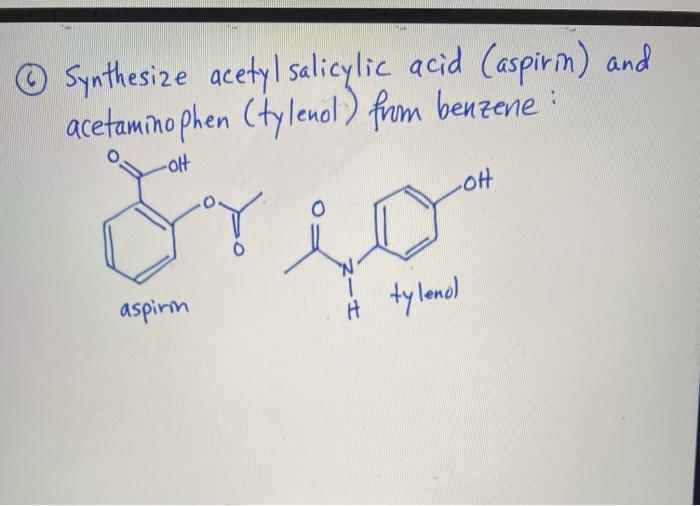 ⑥ Synthesize acetyl salicylic acid (aspirin) and
acetaminophen (tylenol) from benzene :
O
OH
O
O
aspirin
O
N
H
OH
tylenol